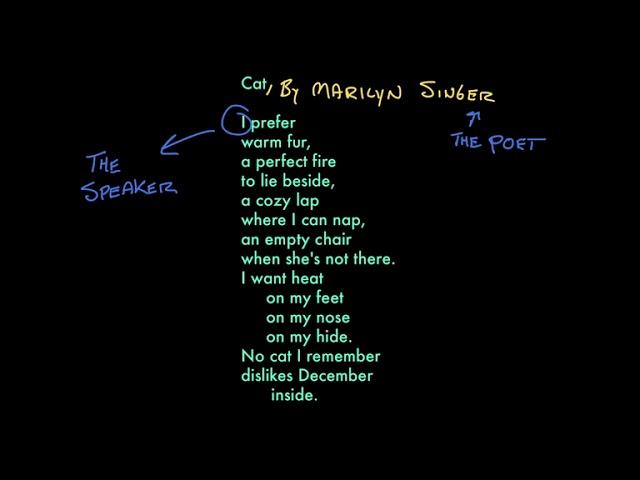 Cat, By MARILYN SINGER
THE POET
I prefer
warm fur,
a perfect fire
to lie beside,
a cozy lap
where I can nap,
an empty chair
when she's not there.
I want heat
on my feet
on my nose
on my hide.
No cat I remember
dislikes December
inside.
THE
SPEAKER